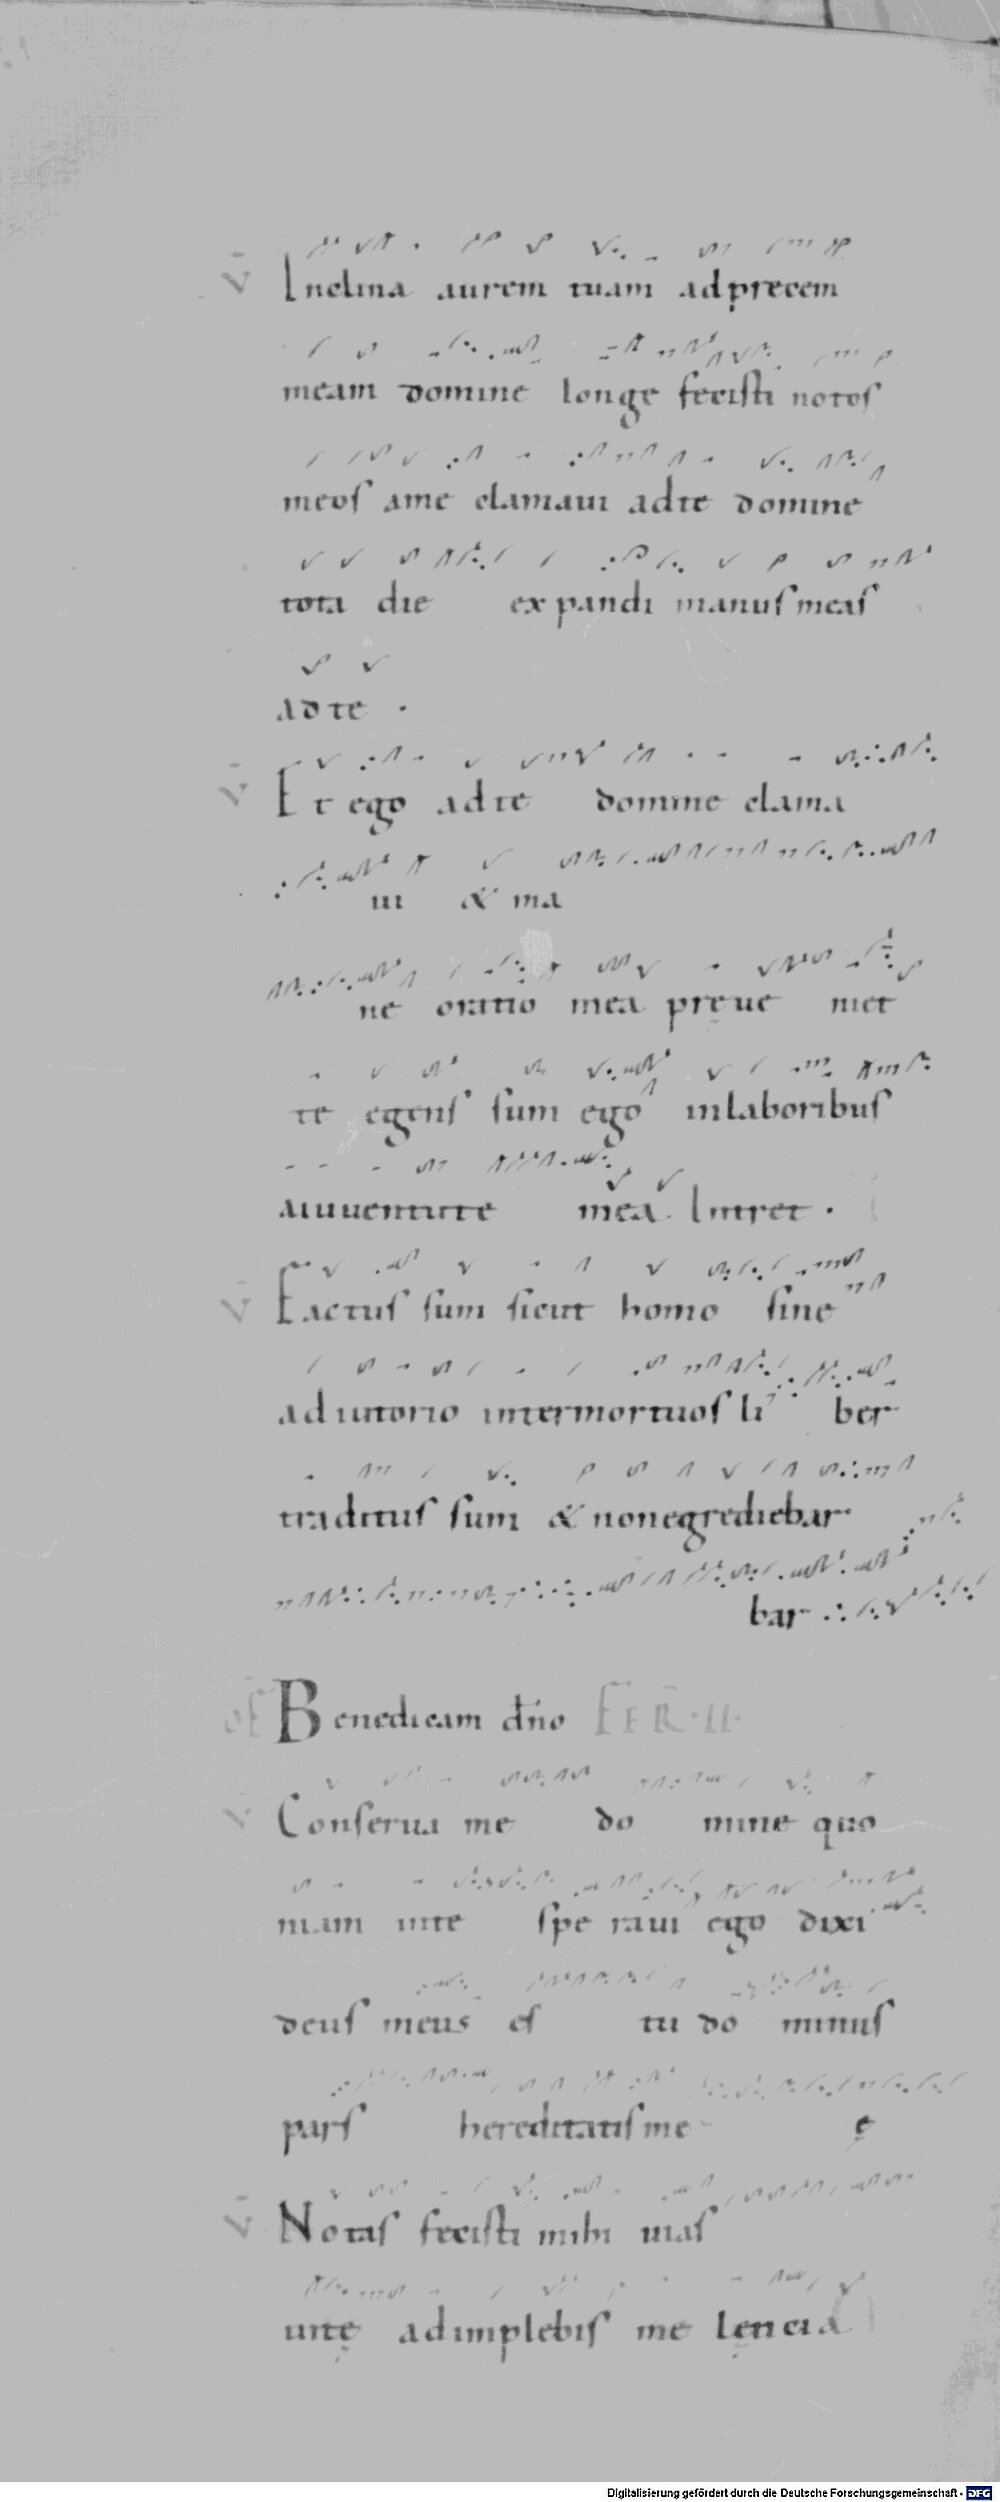 V̄ Inclina aurem tuam ad precem
meam domine longe fecisti notos
meos a me clamaui ad te domine
tota die expandi manus meas
ad te .
V̄ Et ego ad te domine clama
ui & ma
ne oratio mea preue niet
te egens sum ego in laboribus
a iuuentute mea . Intret .
V̄ Factus sum sicut homo sine
adiutorio inter mortuos li ber
traditus sum & non egrediebar
bar
OF Benedicam dño FER · II ·
V̄ Conserua me do mine quo
niam in te spe raui ego dixi
deus meus es tu do minus
pars hereditatis me ę
V̄ Notas fecisti mihi uias
uitę adimplebis me
Digitalisierung gefördert durch die Deutsche Forschungsgemeinschaft - DFG